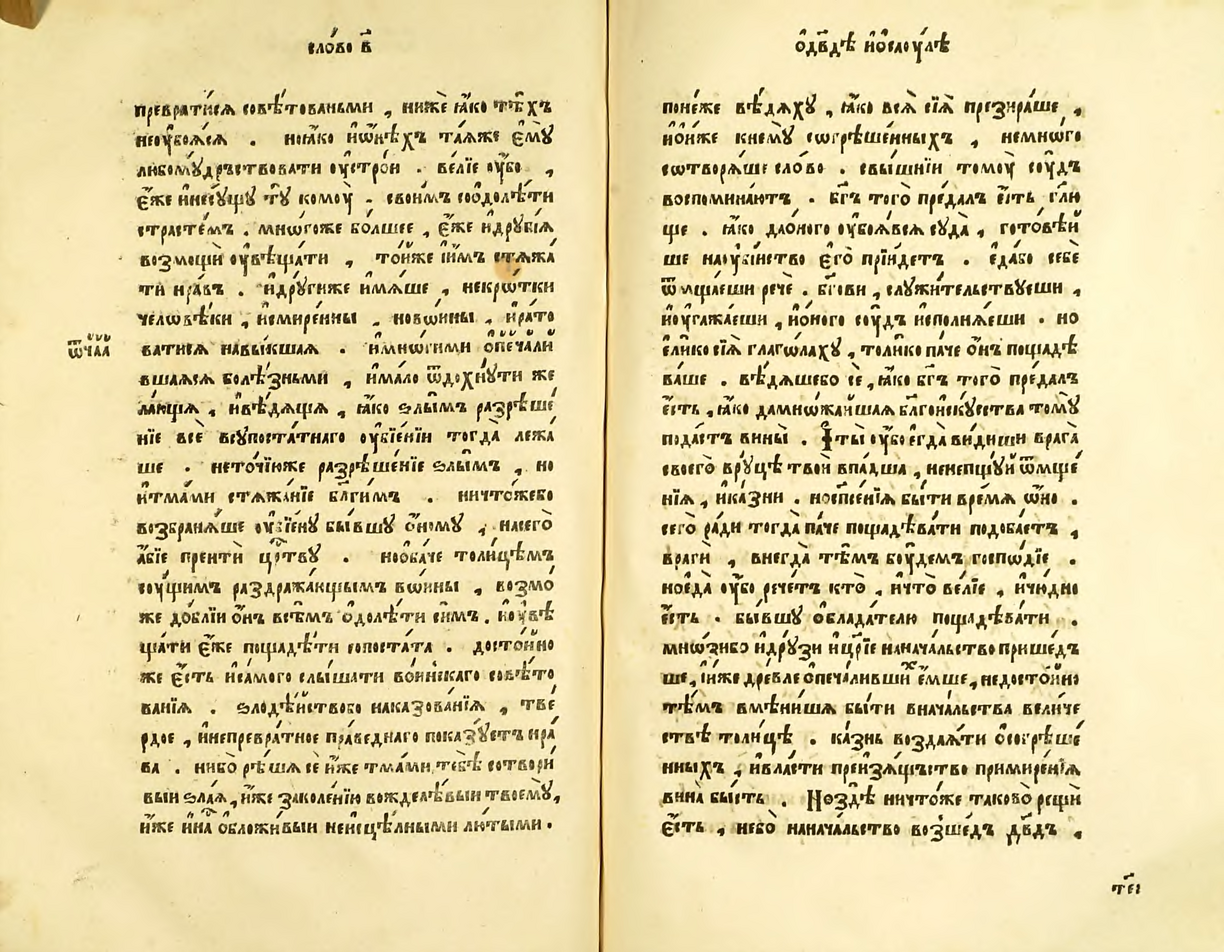 сло́во в҃
преврати́сѧ совѣ́тованьми , нижѐ ꙗ҆́ко тѣ́хъ
неоу҆боѧ́сѧ . но ꙗ҆́ко и҆ѡ҆нѣ́хъ та́ѧже є҆мꙋ̀
любомꙋ́дръствовати оу҆стро́и . ве́лїе оу҆́бо ,
є҆́же и҆несꙋ́щꙋ тꙋ̀ комоу̀ . свои́мъ соѻдолѣ́ти
страсте́мъ . мно́гоже бо́лшее , є҆́же и҆дрꙋгі́ѧ
возмощѝ оу҆вѣща́ти , то́иже и҆́мъ стѧжа
ти нра́въ . и҆дрꙋги́же и҆мѧ́ше , некрѡ́тки
человѣ́ки , и҆смире́нны , новѡ́ины , и҆рато
ватисѧ навы́кшаѧ . и҆мно́гими ѻ҆печа́ли
вшаѧсѧ болѣ́зньми , и҆ма́ло ѿдохнꙋ́ти же
ла́ющѧ , и҆вѣ́дѧщѧ , ꙗ҆́ко ѕлы́мъ разрѣше́
нїе всѐ всꙋпоста́тнаго оу҆бїе́нїи тогда̀ лежа
ше . неточі́юже разрѣше́нїе ѕлы́мъ , но
и҆тма́ми стѧжа́нїе бл҃ги́мъ . ничто́жебо
возбранѧ́ше оу҆бїе́нꙋ бы́вшꙋ ѻ҆́номꙋ , насего̀
а҆́бїе преитѝ црⷭ҇твꙋ . но ѻ҆ба́че толи́цѣмъ
соу́щимъ раздража́ющымъ во́ины , возмо́
же до́блїи ѻ҆́нъ всѣ́мъ ѻ҆долѣ́ти си́мъ . и҆оу҆вѣ
ща́ти є҆́же пощадѣ́ти сопоста́та . досто́йно
же є҆́сть и҆самого̀ слы́шати во́иньскаго совѣ́то
ванїѧ . ѕлодѣ́йствобо наказова́нїѧ , тве
рдое , и҆непревра́тное пра́веднаго показꙋ́етъ нра́
ва . ни́бо рѣ́шѧ се и҆́же тма́ми , тебѣ̀ сотвори
выи ѕла́ѧ , и҆́же заколе́нїю вожделѣ́выи твоемꙋ̀ ,
и҆́же и҆на̀ ѻ҆бложи́выи неисцѣ́лными лю́тыми .
ѻ҆дв҃дѣ и҆ѻ҆саоу́лѣ
поне́же вѣ́дѧхꙋ , ꙗ҆́ко всѧ̀ сїѧ̀ презира́ше ,
и҆ѻ҆́ниже кнемꙋ̀ согрѣше́нныхъ , немно́го
сотворѧ́ше сло́во . свы́шнїи томоу̀ соу́дъ
воспомина́ютъ . бг҃ъ того̀ преда́лъ є҆́сть гл҃ю
ще . ꙗ҆́ко даѻ҆́ного оу҆боѧ́всѧ сꙋда̀ , гото́вѣй
ше наоу҆бі́йство є҆го̀ прїи́детъ . є҆да́бо себѐ
ѿмща́еши речѐ . бг҃ови , слꙋжи́тельствꙋеши ,
и҆оу҆гажа́еши , и҆ѻ҆́ного соу́дъ и҆сполнѧ́еши . но
є҆ли́ко сїѧ̀ глаго́лахꙋ , толи́ко па́че ѻ҆́нъ пощадѣ
ва́ше . вѣ́дѧшебо се , ꙗ҆́ко бг҃ъ того̀ преда́лъ
є҆́сть , ꙗ҆́ко дамно́жайшаѧ бл҃гоискꙋ́сства томꙋ̀
пода́стъ вины̀ . І҆ты̀ оу҆́бо є҆гда̀ ви́диши врага̀
своего̀ врꙋ́цѣ твоѝ впа́дша , ненепщꙋ́й ѿмще́
нїѧ , и҆ка́зни . носпсе́нїѧ бы́ти вре́мѧ ѻ҆́но .
сего̀ ра́ди тогда̀ па́че пощадѣва́ти подоба́етъ ,
врагѝ , внегда̀ тѣ́мъ боу́демъ госпо́дїе .
ноеда̀ оу҆́бо рече́тъ кто̀ , и҆что̀ ве́лїе , и҆чю́дно
є҆́сть . бы́вшꙋ ѻ҆блада́телю пощадѣва́ти .
мно́зибо и҆дрꙋ́зи и҆црі́е наначальство прише́дъ
ше , и҆́же дре́вле ѻ҆печа́ливших̾ є҆́мше , недосто́йно
тѣ́мъ вмѣни́шѧ бы́ти внача́льства вели́че
ствѣ толи́цѣ . ка́знь возда́ѧти ѻ҆согрѣше́
нныхъ , и҆вла́сти преизѧ́щьство примире́нїѧ
вина̀ бы́сть . Но здѣ̀ ничто́же таково̀ рещѝ
є҆́сть , не́бо наначальство возше́дъ дв҃дъ ,
та́ѧ